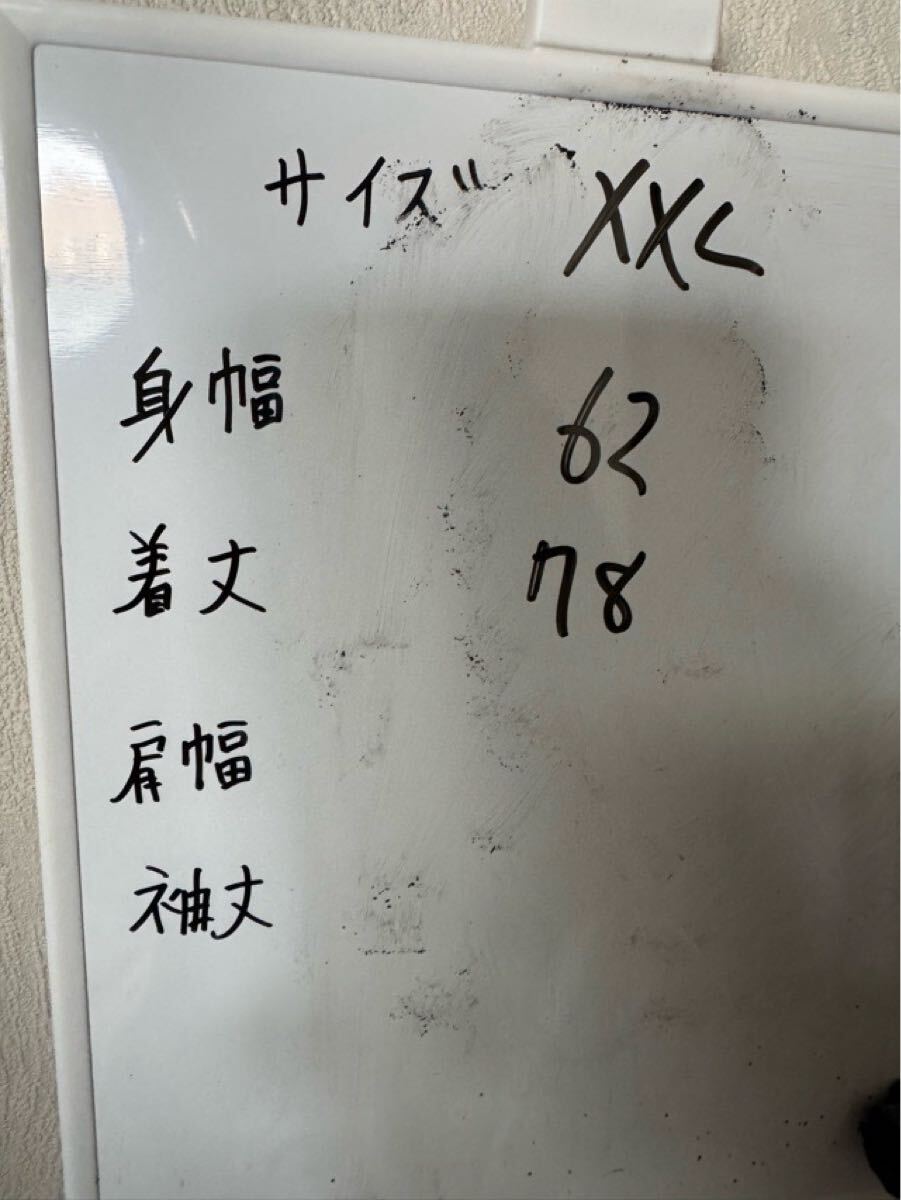 サイズ XXL
身幅 62
着丈 78
肩幅
袖丈